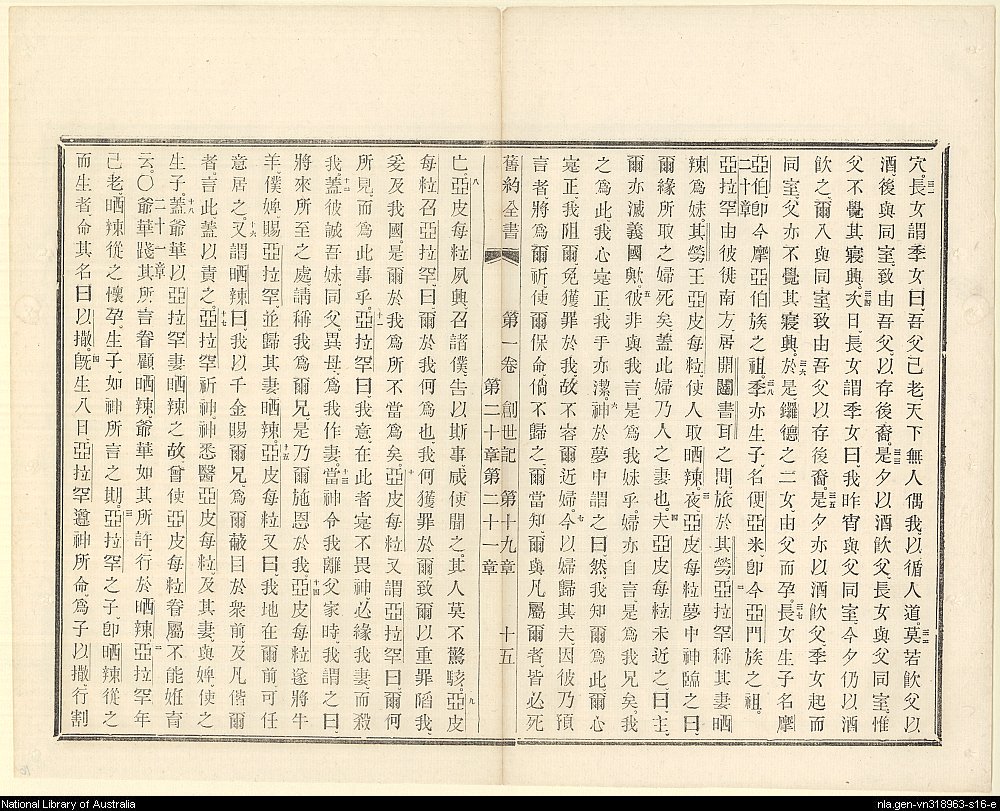 穴。三一長女謂季女曰、吾父已老天下無人偶我以循人道。三二莫若飲父以
酒後與同室致由吾父以存後裔。三三是夕以酒飲父、長女與父同室惟
父不覺其寢興。三四次日、長女謂季女曰、我昨宵與父同室、今夕仍以酒
飲之、爾入與同室、致由吾父以存後裔。三五是夕亦以酒飲父季女起而
同室、父亦不覺其寢興。三六於是鑼德之二女、由父而孕。三七長女生子名摩
亞伯卽今摩亞伯族之祖。三八季亦生子、名便亞米、卽今亞門族之祖。
二十章
亞拉罕由彼徙南方、居開闥書耳之間、旅於其勞。二亞拉罕稱其妻晒
辣爲妹、其勞王亞皮每粒、使人取晒辣。三夜亞皮每粒夢中神臨之曰、
爾緣所取之婦死矣蓋此婦乃人之妻也。四夫亞皮每粒未近之、曰、主、
爾亦滅義國歟。五彼非與我言、是爲我妹乎。婦亦自言是爲我兄矣。我
之爲此我心寔正我手亦潔。六神於夢中謂之曰、然、我知爾爲此爾心
寔正、我阻爾免獲罪於我、故不容爾近婦。七今以婦歸其夫因彼乃預
言者將爲爾祈、使爾保命、倘不歸之爾當知、爾與凡屬爾者、皆必死
舊約全書　第一卷　創世記　第十九章　第二十章第二十一章　十五
亡。八亞皮每粒夙興、召諸僕、告以斯事、咸使聞之、其人莫不驚駭。九亞皮
每粒、召亞拉罕、曰、爾於我何爲也、我何獲罪於爾致爾以重罪陷我、
爰及我國。是爾於我、爲所不當爲矣。十亞皮每粒又謂亞拉罕曰、爾何
所見、而爲此事乎。十一亞拉罕曰、我意、在此者寔不畏神、必緣我妻、而殺
我。十二蓋彼誠吾妹、同父、異母、爲我作妻。十三當神令我離父家時、我謂之曰、
將來所至之處、請稱我爲爾兄、是乃爾施恩於我。十四亞皮每粒遂將牛
羊、僕婢賜亞拉罕、並歸其妻晒辣。十五亞皮每粒又曰、我地在爾前可任
意居之。十六又謂晒辣曰、我以千金賜爾兄、爲爾蔽目於衆前、及凡偕爾
者、言此、蓋以責之。十七亞拉罕祈神、神悉醫亞皮每粒、及其妻、與婢使之
生子。十八蓋爺華以亞拉罕妻晒辣之故、曾使亞皮每粒眷屬不能姙育
云。〇二十一章 爺華踐其所言眷顧晒辣、爺華如其所許、行於晒辣。二亞拉罕年
已老、晒辣從之懷孕、生子、如神所言之期。三亞拉罕之子、卽晒辣從之
而生者、命其名曰以撒。四旣生八日亞拉罕遵神所命、爲子以撒行割
National Library of Australia
nla.gen-vn318963-s16-e